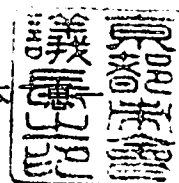 京都市会
議長之印